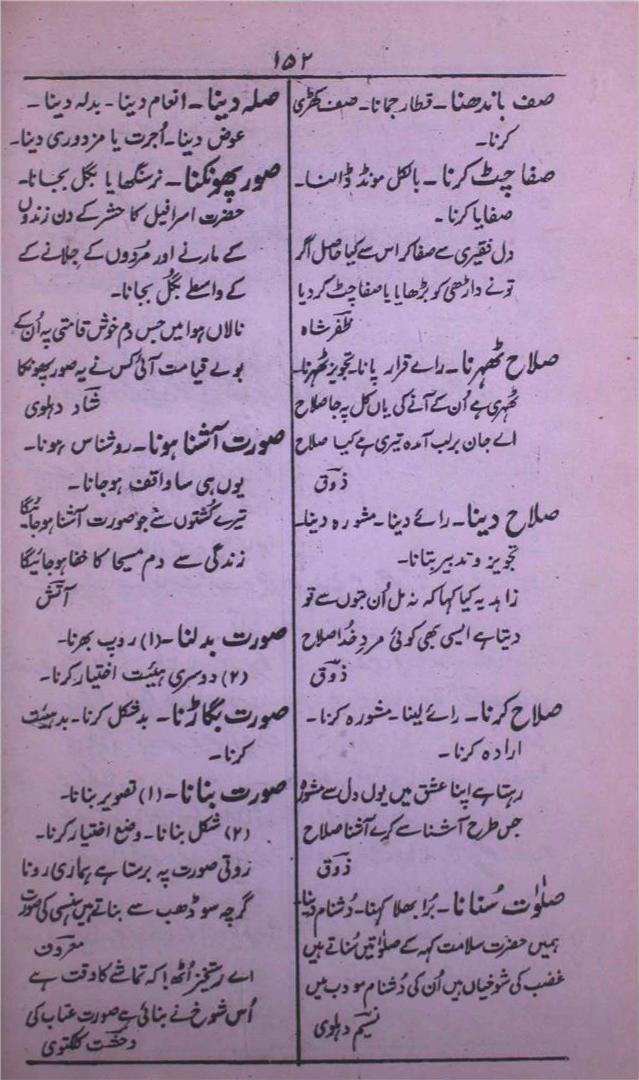 ۱۵۲
صف باندھنا۔ قطار جمانا۔ صف کھڑی
کرنا۔
صفا چٹ کرنا۔ بالکل مونڈ ڈالنا۔
صفایا کرنا۔
دل فقیری سے صفا کر اس سے کیا حاصل اگر
تونے داڑھی کو بڑھایا یا صفا چٹ کر دیا
ظفر شاہ
صلاح ٹھہرنا۔ رائے قرار پانا۔ تجویز ٹھہرنا۔
ٹھہری ہے اُن کے آنے کی یاں کل پہ جا صلاح
اے جان بر لب آمدہ تیری ہے کیا صلاح
ذوق
صلاح دینا۔ رائے دینا۔ مشورہ دینا۔
تجویز و تدبیر بتانا۔
زاہد یہ کیا کہا کہ نہ مل اُن بتوں سے تو
دیتا ہے ایسی بھی کوئی مردِ خدا صلاح
ذوق
صلاح کرنا۔ رائے لینا۔ مشورہ کرنا۔
ارادہ کرنا۔
رہتا ہے اپنا عشق میں یوں دل سے مشورہ
جس طرح آشنا سے کرے آشنا صلاح
ذوق
صلوٰت سُنانا۔ بُرا بھلا کہنا۔ دُشنام دینا۔
ہمیں حضرت سلامت کہہ کے صلوٰتیں سُناتے ہیں
غضب کی شوخیاں ہیں اُن کی دُشنام مودب میں
نسیم دہلوی
صلہ دینا۔ انعام دینا۔ بدلہ دینا۔
عوض دینا۔ اُجرت یا مزدوری دینا۔
صور پھونکنا۔ نرسنگھا یا بگل بجانا۔
حضرت اسرافیل کا حشر کے دن زندوں
کے مارنے اور مُردوں کے جلانے کے
کے واسطے بگُل بجانا۔
نالاں ہوا میں جس دم خوش قامتی پہ اُن کے
بولے قیامت آئی کس نے یہ صور پھونکا
شاد دہلوی
صورت آشنا ہونا۔ روشناس ہونا۔
یوں ہی سا واقف ہو جانا۔
تیرے کُشتوں سے جو صورت آشنا ہو جائیگا
زندگی سے دم مسیحا کا خفا ہو جائیگا
آتش
صورت بدلنا۔ (۱) روپ بھرنا۔
(۲) دوسری ہیئت اختیار کرنا۔
صورت بگاڑنا۔ بدشکل کرنا۔ بدہیئت
کرنا۔
صورت بنانا۔ (۱) تصویر بنانا۔
(۲) شکل بنانا۔ وضع اختیار کرنا۔
روتی صورت پہ برستا ہے ہماری رونا
گرچہ سو ڈھب سے بناتے ہیں ہنسی کی صورت
معروف
اے رستخیز اُٹھ! کہ تماشے کا وقت ہے
اُس شوخ نے بنائی ہے صورت عتاب کی
وحشت کلکتوی